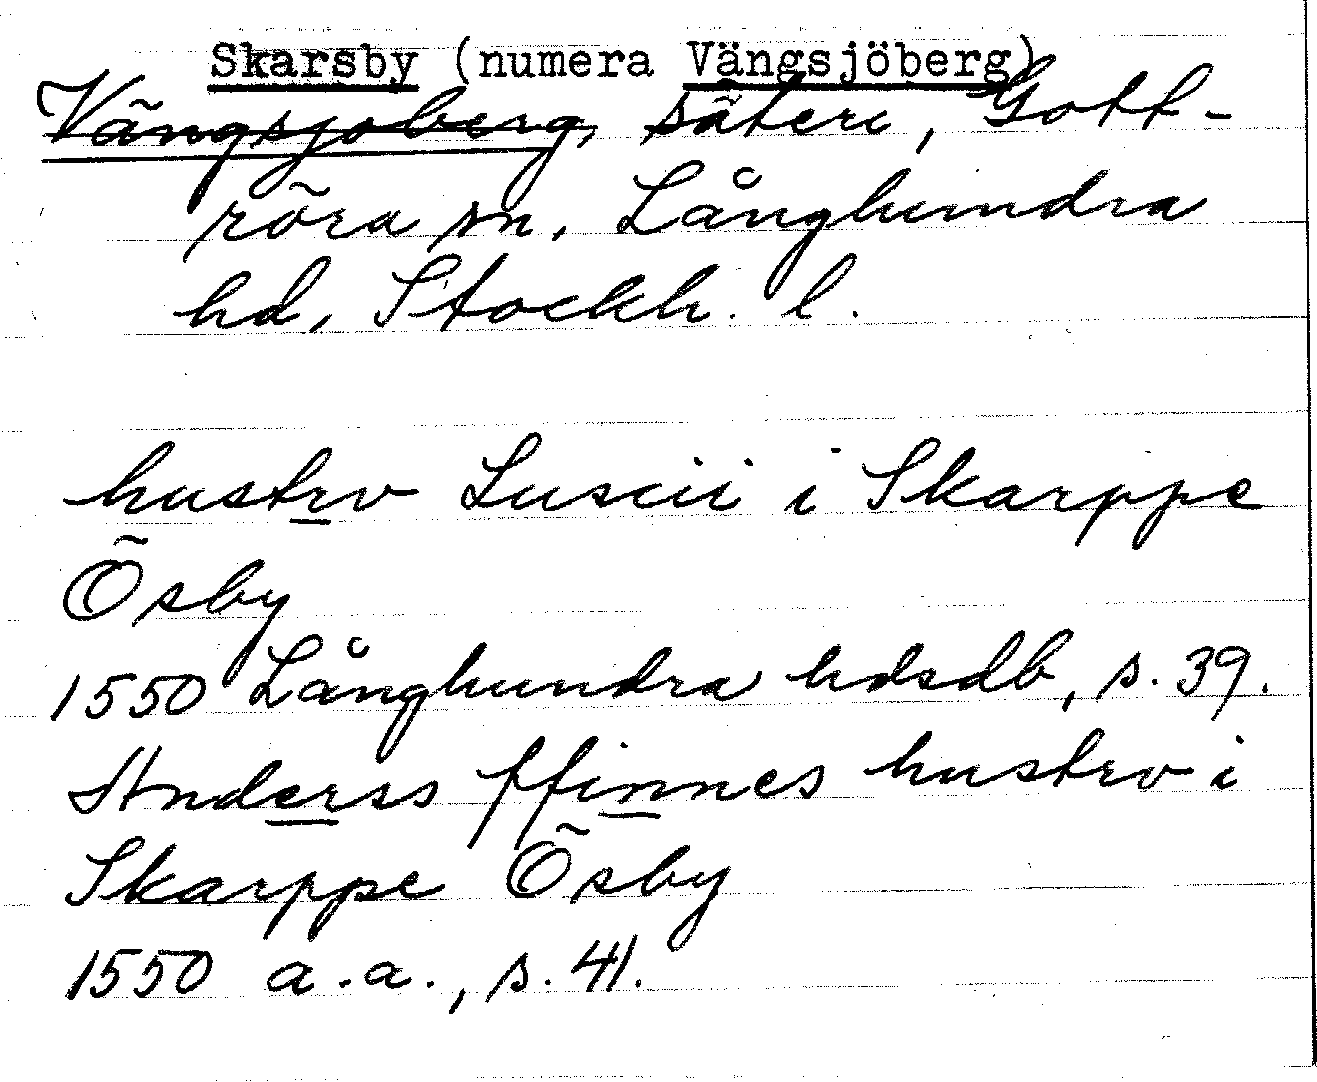 Skarsby (numera Vängsjöberg)
Vängsjöberg, säteri, Gott-
röra sn, Långhundra
hd, Stockh. l.
hustrv Luscii i Skarppe
Ösby
1550 Långhundra hdsdb, s. 39.
Anderss ffinnes hustrv i
Skarppe Ösby
1550 a.a., s. 41.